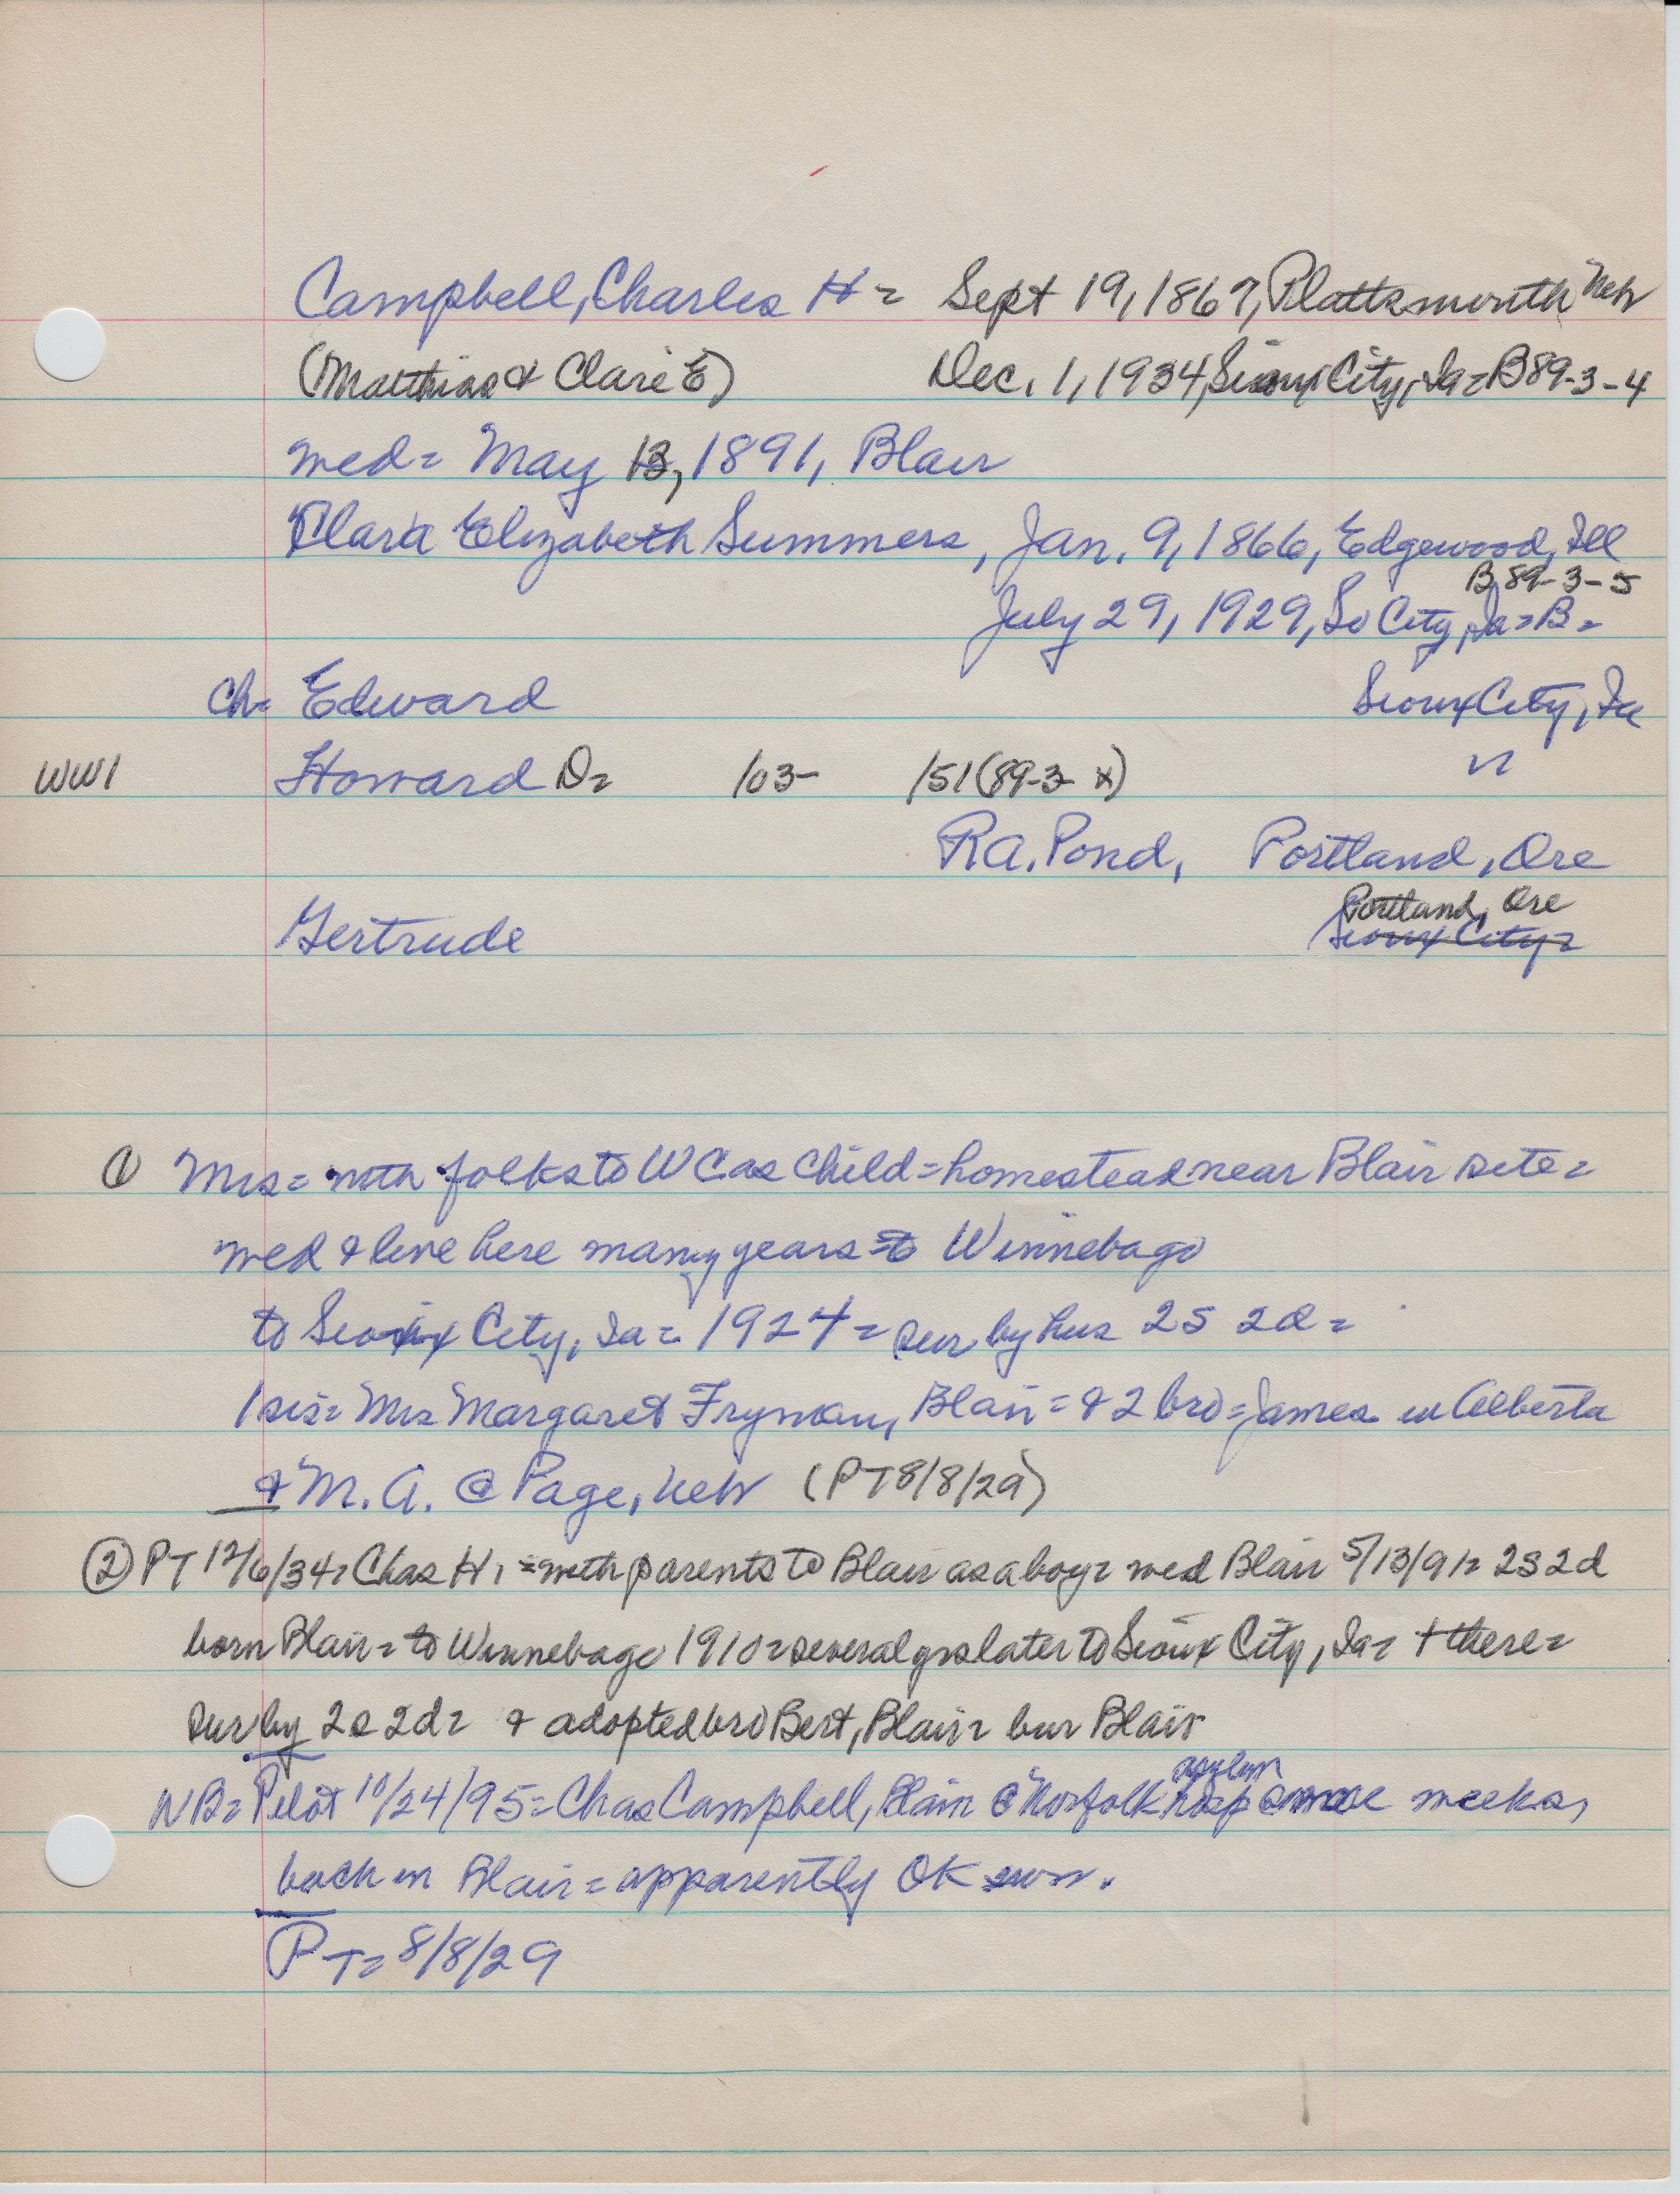 Campbell, Charles H = Sept 19, 1867, Plattsmouth Neb
(Matthias & Clare E) Dec. 1, 1934, Sioux City, Ia = B 89-3-4
med = May 13, 1891, Blair
Clara Elizabeth Summers, Jan. 9, 1866, Edgewood, Ill
B 89-3-5
July 29, 1929, So City, Ia = B =
ch = Edward Sioux City, Ia
WW1 Howard D = /03- /51 (89-3 x) "
RA. Pond, Portland, Ore
Portland, Ore
Gertrude Sioux City =
① Mrs = with folks to WC as child = homestead near Blair site =
med & live here many years = to Winnebago
to Sioux City, Ia = 1924 = sur by hus 2S 2d =
1 sis = Mrs Margaret Fryman, Blair = & 2 bro = James in Alberta
& M. A. @ Page, Neb (PT 8/8/29)
② PT 12/6/34 = Chas H, = with parents to Blair as a boy = med Blair 5/13/91 = 2S 2d
born Blair = to Winnebago 1910 = several yrs later to Sioux City, Ia = + there =
sur by 2s 2d = & adopted bro Bert, Blair = bur Blair
asylum
NB = Pilot 10/24/95 = Chas Campbell, Blair @ Norfolk hosp some weeks,
back in Blair = apparently OK now.
PT = 8/8/29